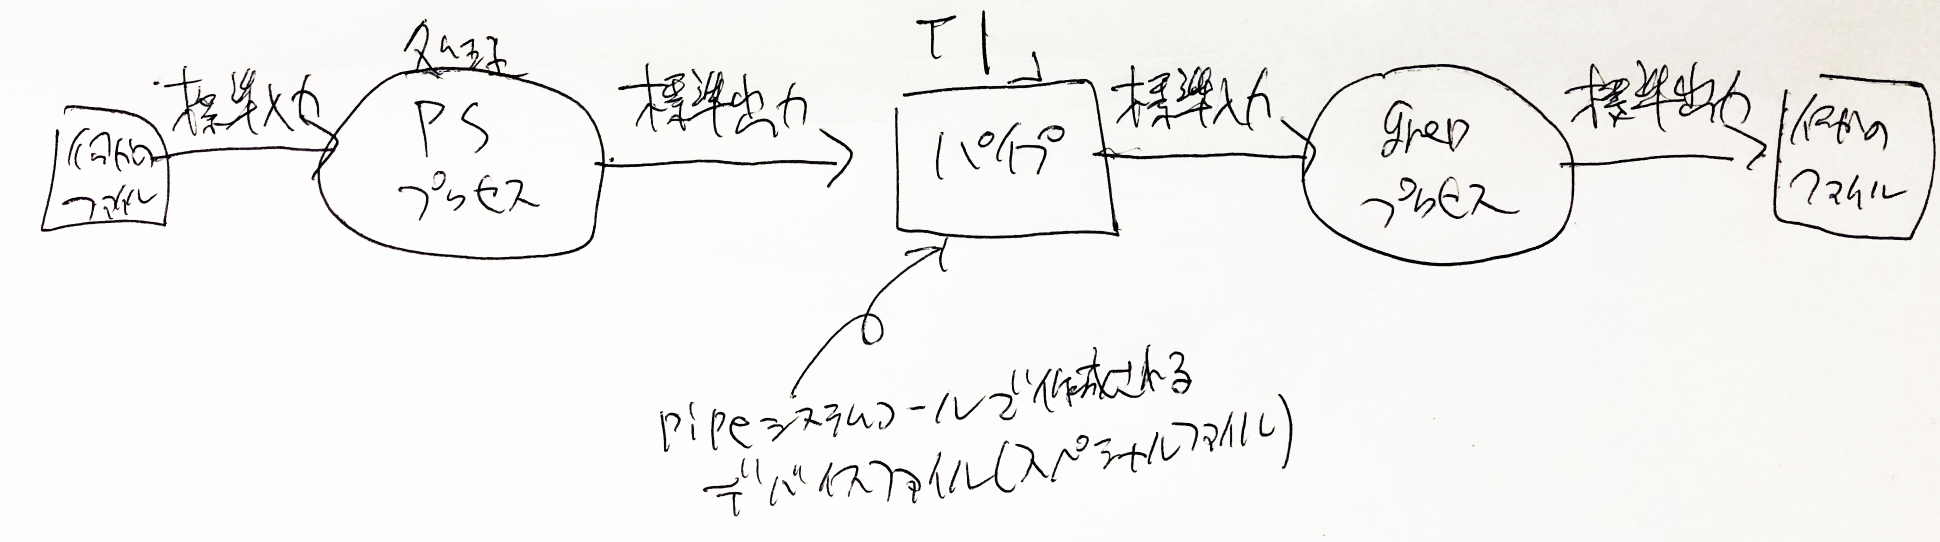 何かの
ファイル
標準入力
処理
PS
プロセス
標準出力
パイプ
標準入力
grep
プロセス
標準出力
何かの
ファイル
pipeシステムコールで作成される
デバイスファイル(スペシャルファイル)